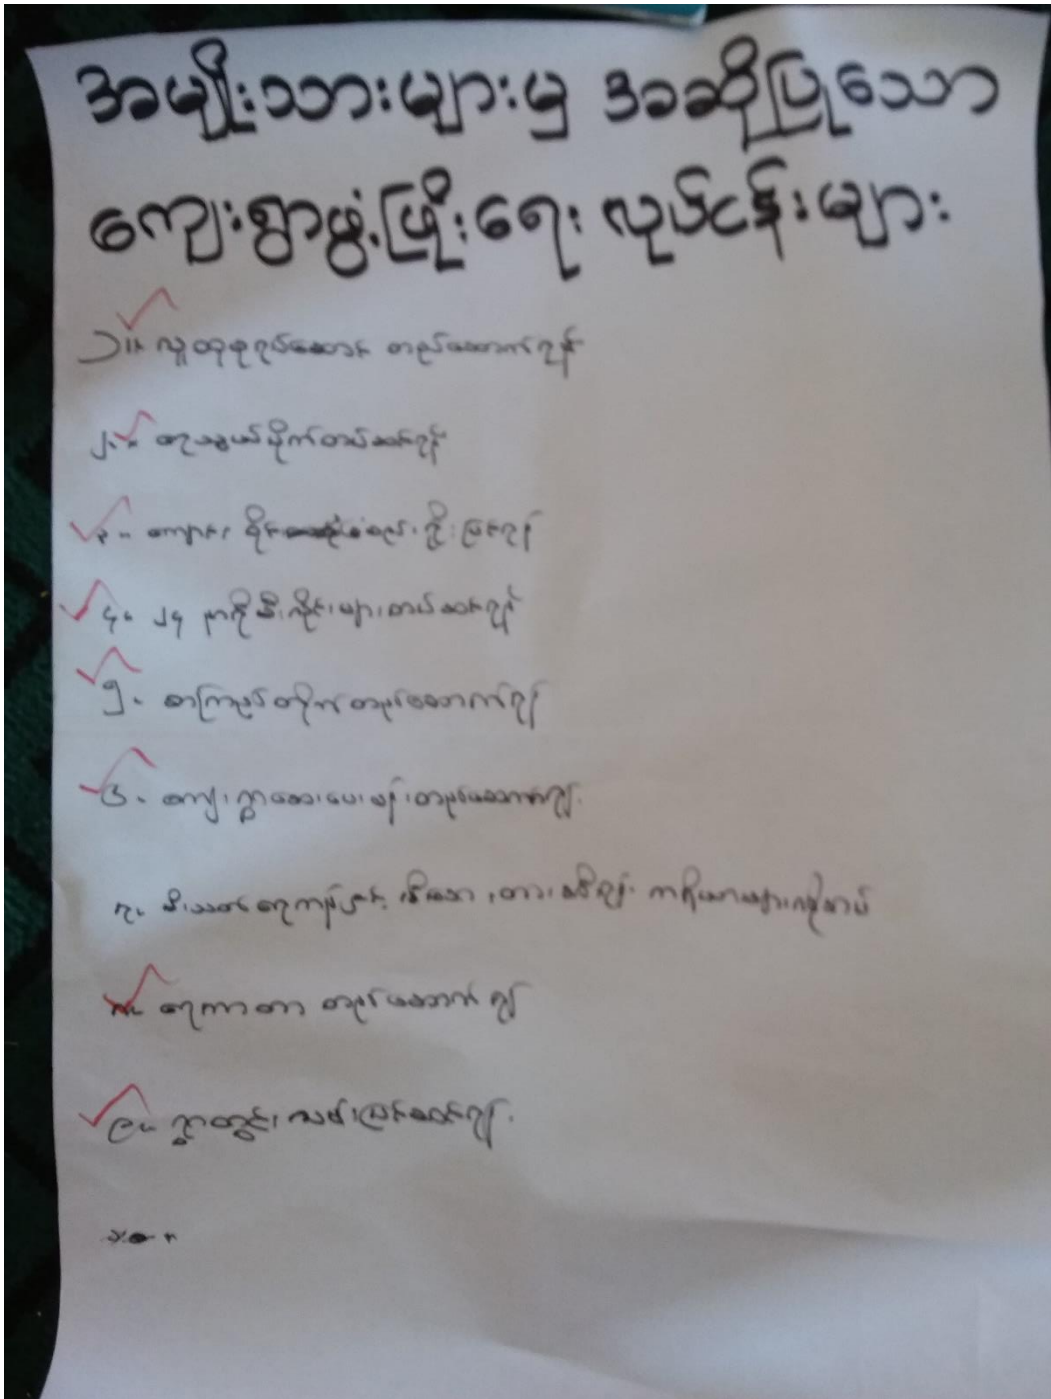 အမျိုးသားများမှ အဆိုပြုသော
ကျေးရွာဖွံ့ဖြိုးရေး လုပ်ငန်းများ
၁။ လူထုစုရပ်ဆောင် တည်ဆောက်ရန်
၂။ ရေသွယ်ပိုက်တပ်ဆင်ရန်
၃။ ကျောင်း ဝိုင်းစည်းရိုးပြင်ရန်
၄။ ၂၄ နာရီမီးလိုင်းများတပ်ဆင်ရန်
၅။ စာကြည့်တိုက်တည်ဆောက်ရန်
၆။ ကျေးရွာဆေးပေးခန်းတည်ဆောက်ရန်
၇။ မီးသတ်ရေကန်နှင့် မီးဘေး တားဆီးရန် ကရိယာများလိုအပ်
၈။ ရေကာတာ တည်ဆောက်ရန်
၉။ ရွာတွင်းလမ်းပြင်ဆင်ရန်